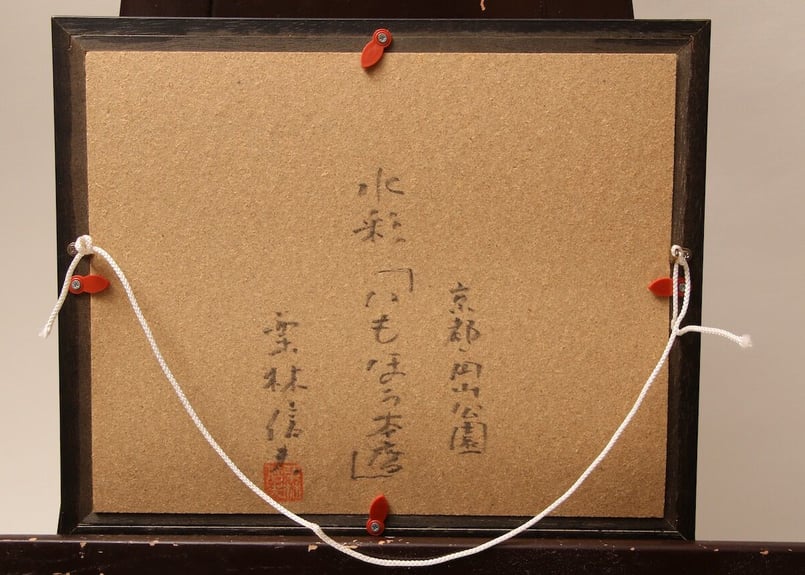 京都円山公園
水彩「いもぼう本店」
栗林信夫